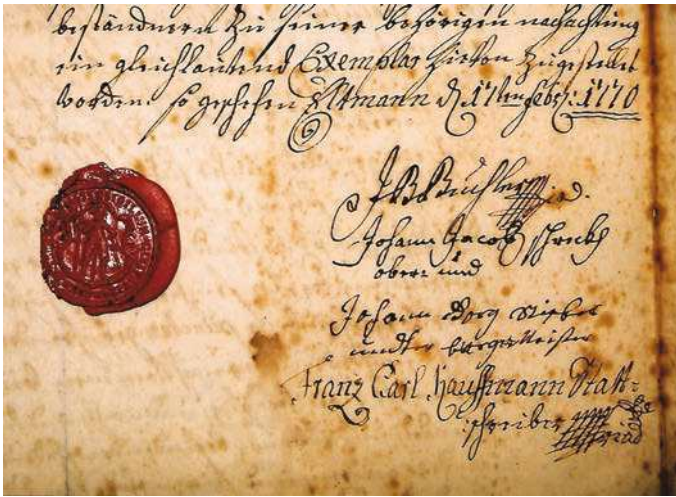 beständnern zu seiner behörigen nachachtung
ein gleichlautend Exemplar hievon zugestellt
worden. so geschehen Eltmann d. 17ten Febr: 1770
JB Büchler
Johann Jacob
ober: und
Johann Georg
undter burgermeister
Franz Carl Kauffmann Statt=
schreiber